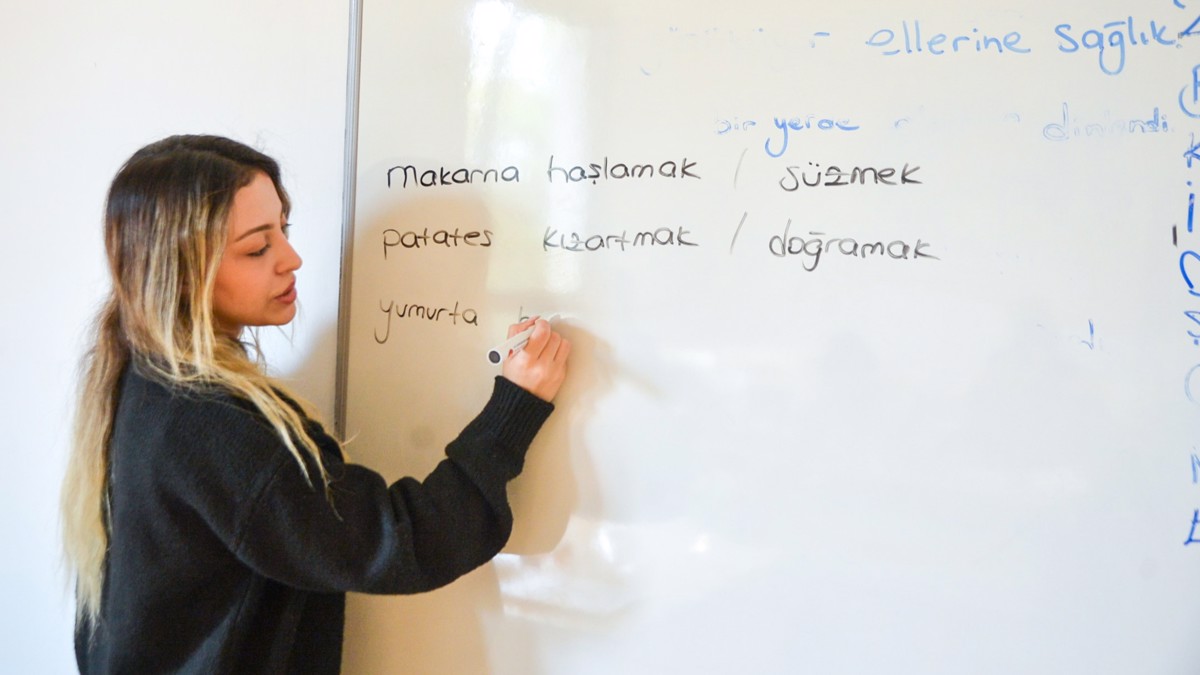 ellerine sağlık
yerde
makarna haşlamak / süzmek
patates kızartmak / doğramak
yumurta